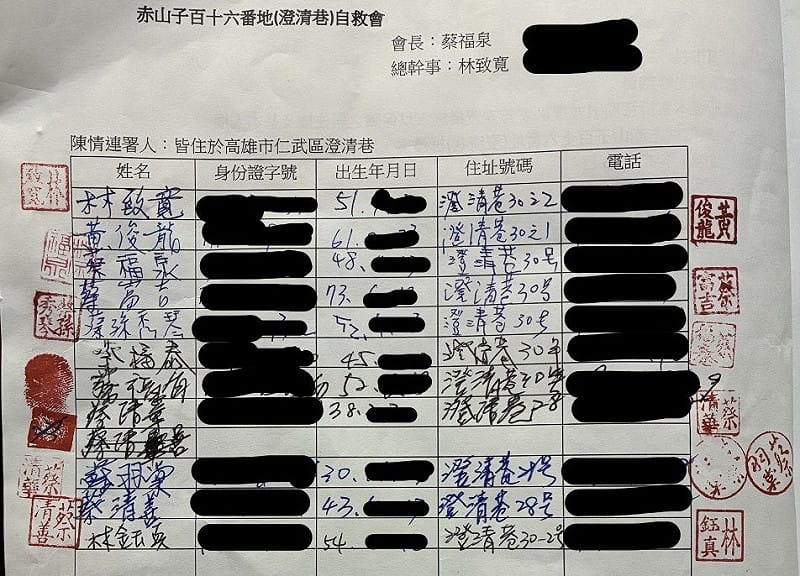 赤山子百十六番地(澄清巷)自救會
會長：蔡福泉
總幹事：林致寬
陳情連署人：皆住於高雄市仁武區澄清巷
姓名 身份證字號 出生年月日 住址號碼 電話
林致寬 51. 澄清巷30之2
黃俊龍 61. 澄清巷30之1
蔡福泉 48. 澄清巷30号
蔡富吉 73. 澄清巷30号
蔡孫秀琴 52. 澄清巷30号
蔡福泰 45. 澄清巷30号
52. 澄清巷
蔡清華 38. 澄清巷28
蔡清善
蔡羽 30. 澄清巷
蔡清善 43. 澄清巷28号
林鈺真 54. 澄清巷30-2号
林致寬
黃俊龍
蔡富吉
蔡孫秀琴
蔡清華
蔡清善
林鈺真